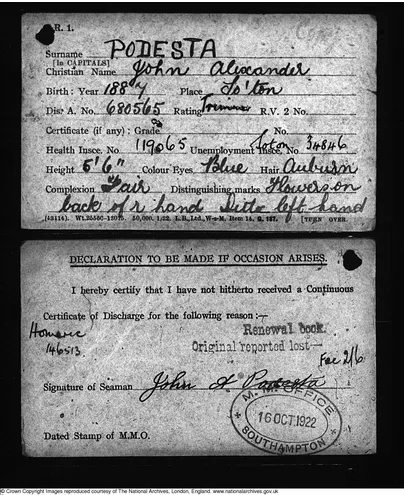 R. 1.
Surname PODESTA
[In CAPITALS]
Christian Name John Alexander
Birth: Year 1887 Place So'ton
Dis: A. No. 680565 Rating R.V. 2 No.
Certificate (if any): Grade No.
Health Insce. No. 119065 Unemployment Insce. No. 34846
Height 5'6" Colour Eyes Blue Hair Auburn
Complexion Fair Distinguishing marks Flowers on
back of r hand Ditto left hand
(43114). Wt. 50,000. 1/22. L.B.,Ltd., W.&M. Item 14. G. 167. [TURN OVER.
DECLARATION TO BE MADE IF OCCASION ARISES.
I hereby certify that I have not hitherto received a Continuous
Certificate of Discharge for the following reason:—
Homeric
146513
Renewal book.
Original reported lost—
Fee 2/6
Signature of Seaman John A Podesta
M. M. OFFICE
16 OCT. 1922
SOUTHAMPTON
Dated Stamp of M.M.O.
© Crown Copyright Images reproduced courtesy of The National Archives, London, England. www.nationalarchives.gov.uk